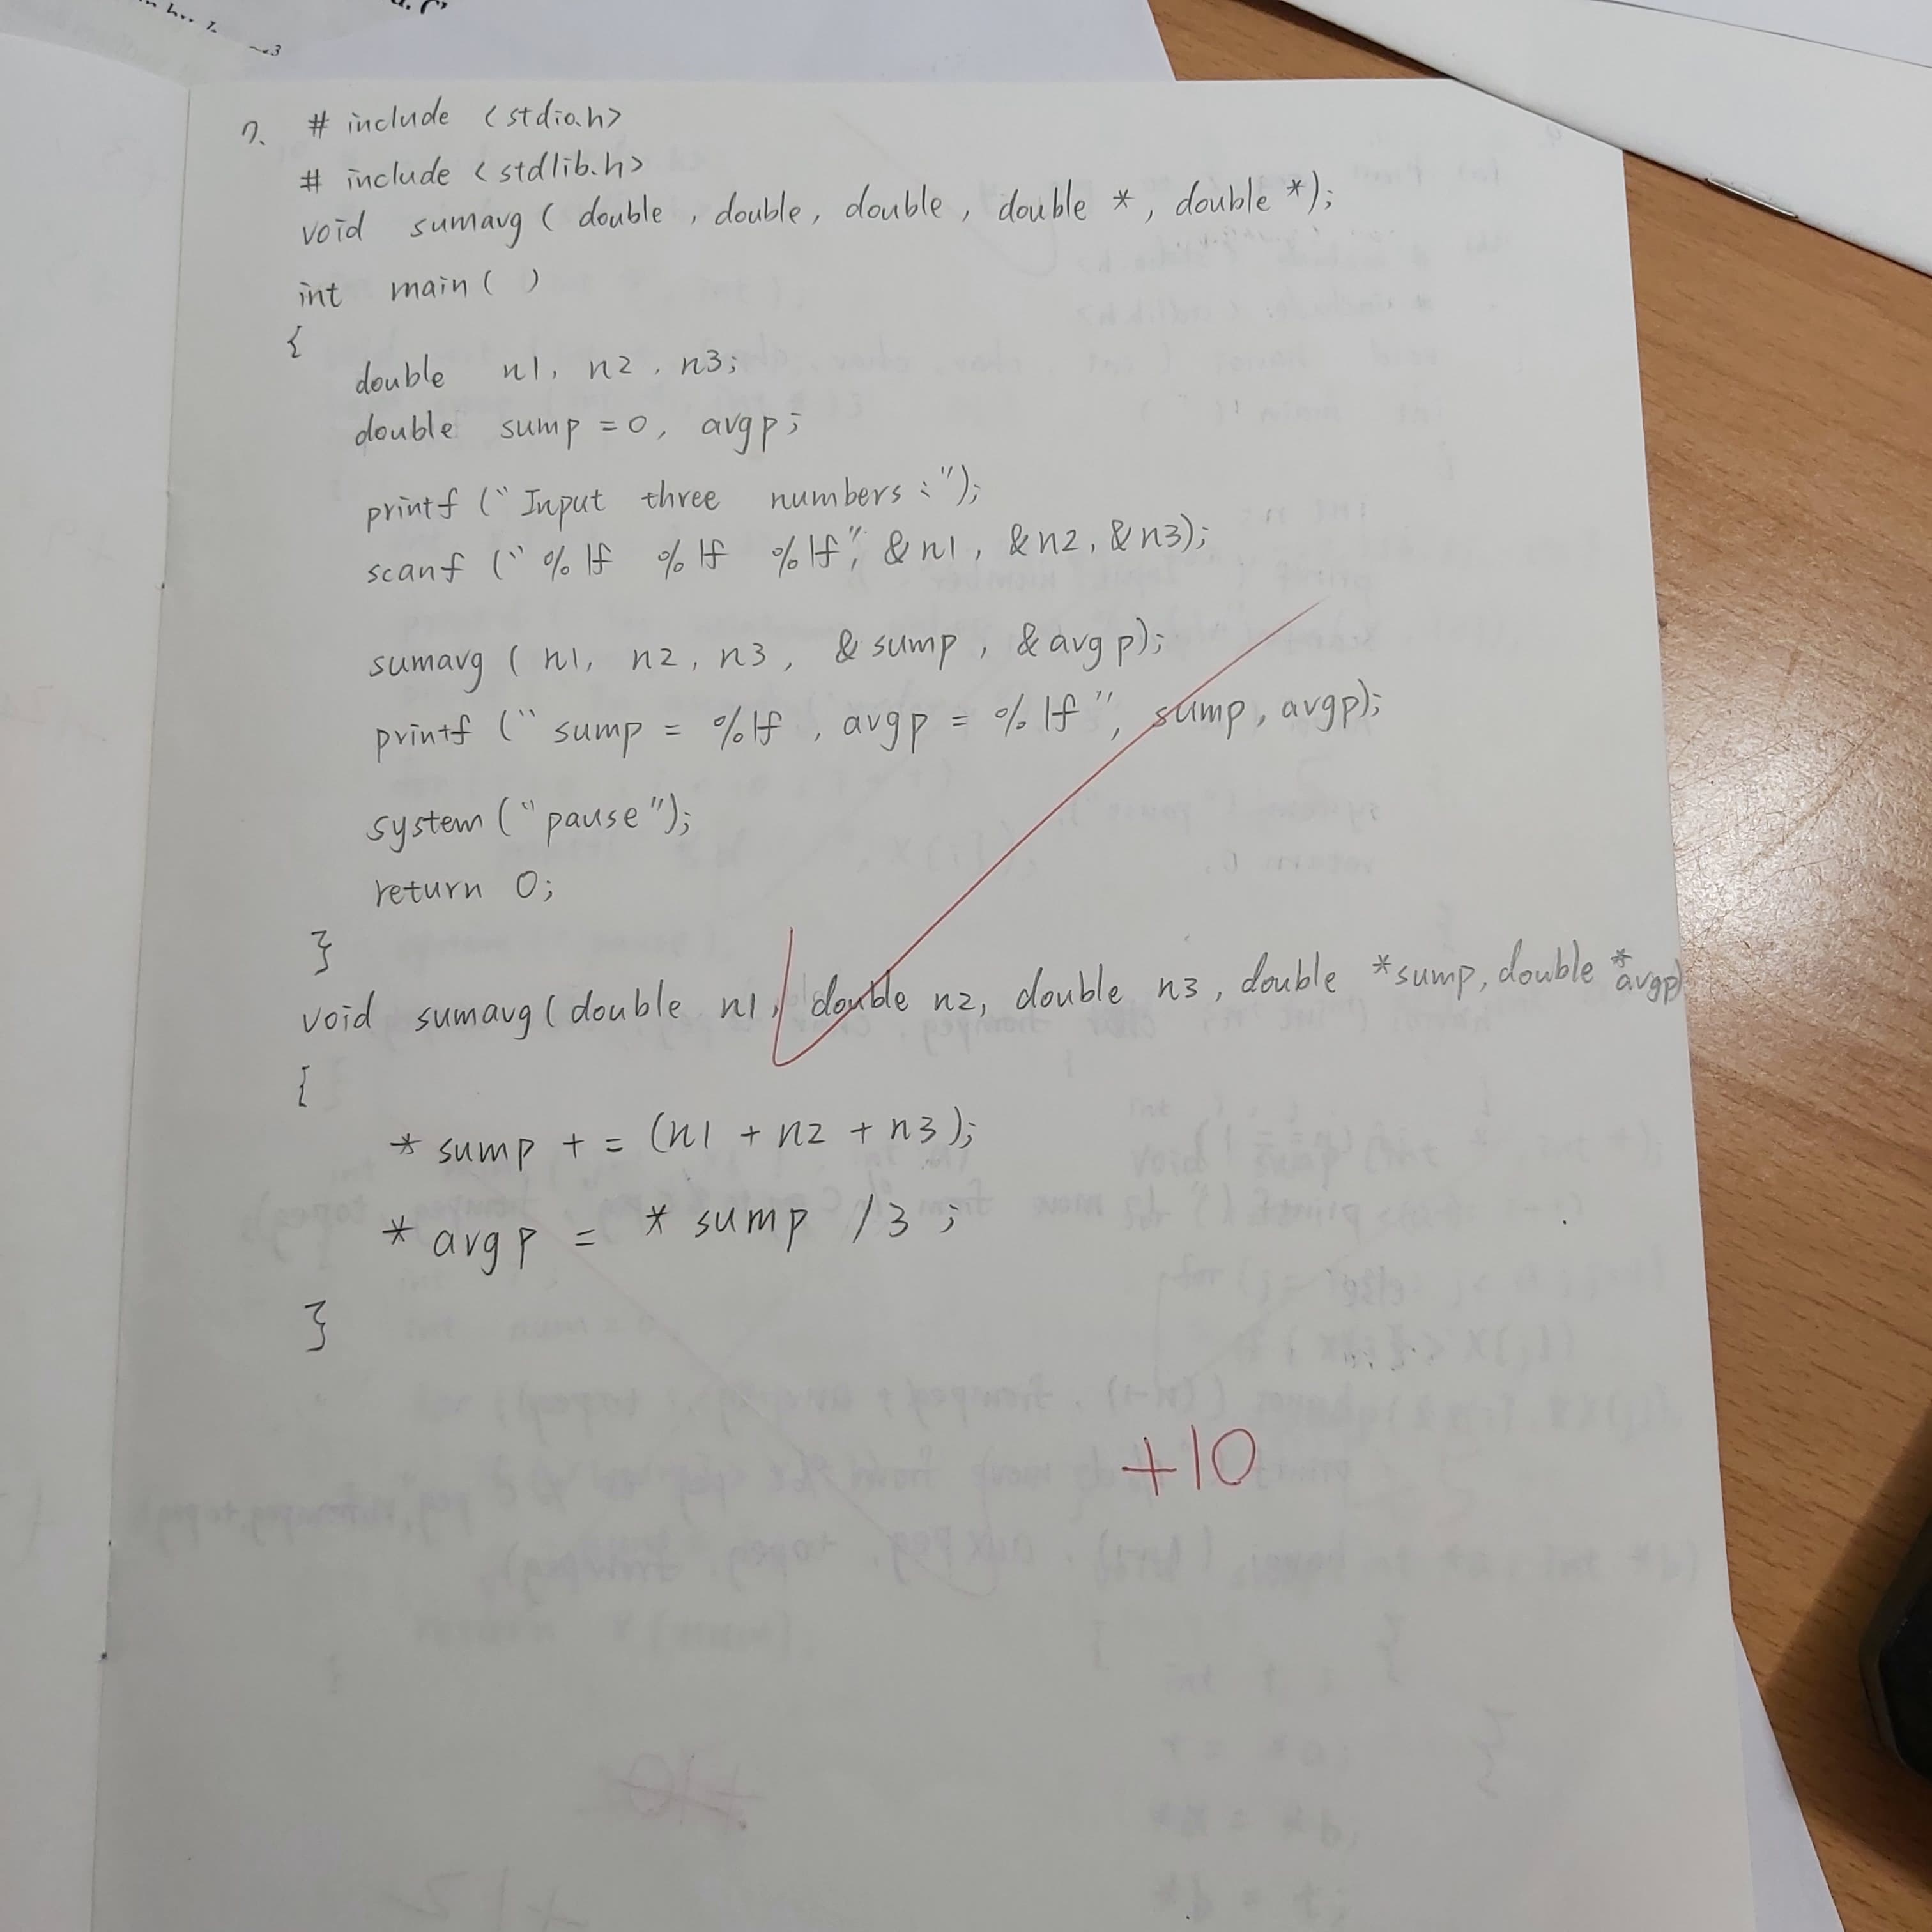 7. # include <stdio.h>
# include <stdlib.h>
void sumavg ( double , double, double , double *, double *);
int main ( )
{
double n1, n2, n3;
double sump = 0, avgp;
printf ("Input three numbers :");
scanf (" %lf %lf %lf", &n1, &n2, &n3);
sumavg ( n1, n2, n3, &sump, &avgp);
printf (" sump = %lf , avgp = %lf ", sump, avgp);
system ("pause");
return 0;
}
void sumavg (double n1, double n2, double n3, double *sump, double *avgp)
{
* sump + = (n1 + n2 + n3);
* avgp = * sump /3 ;
}
+10